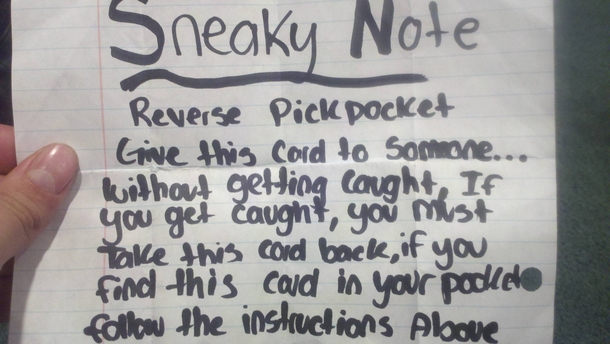 Sneaky Note
Reverse Pickpocket
Give this Card to Someone...
without getting Caught, If
you get caught, you must
Take this card back, if you
find this card in your pocket
follow the instructions Above